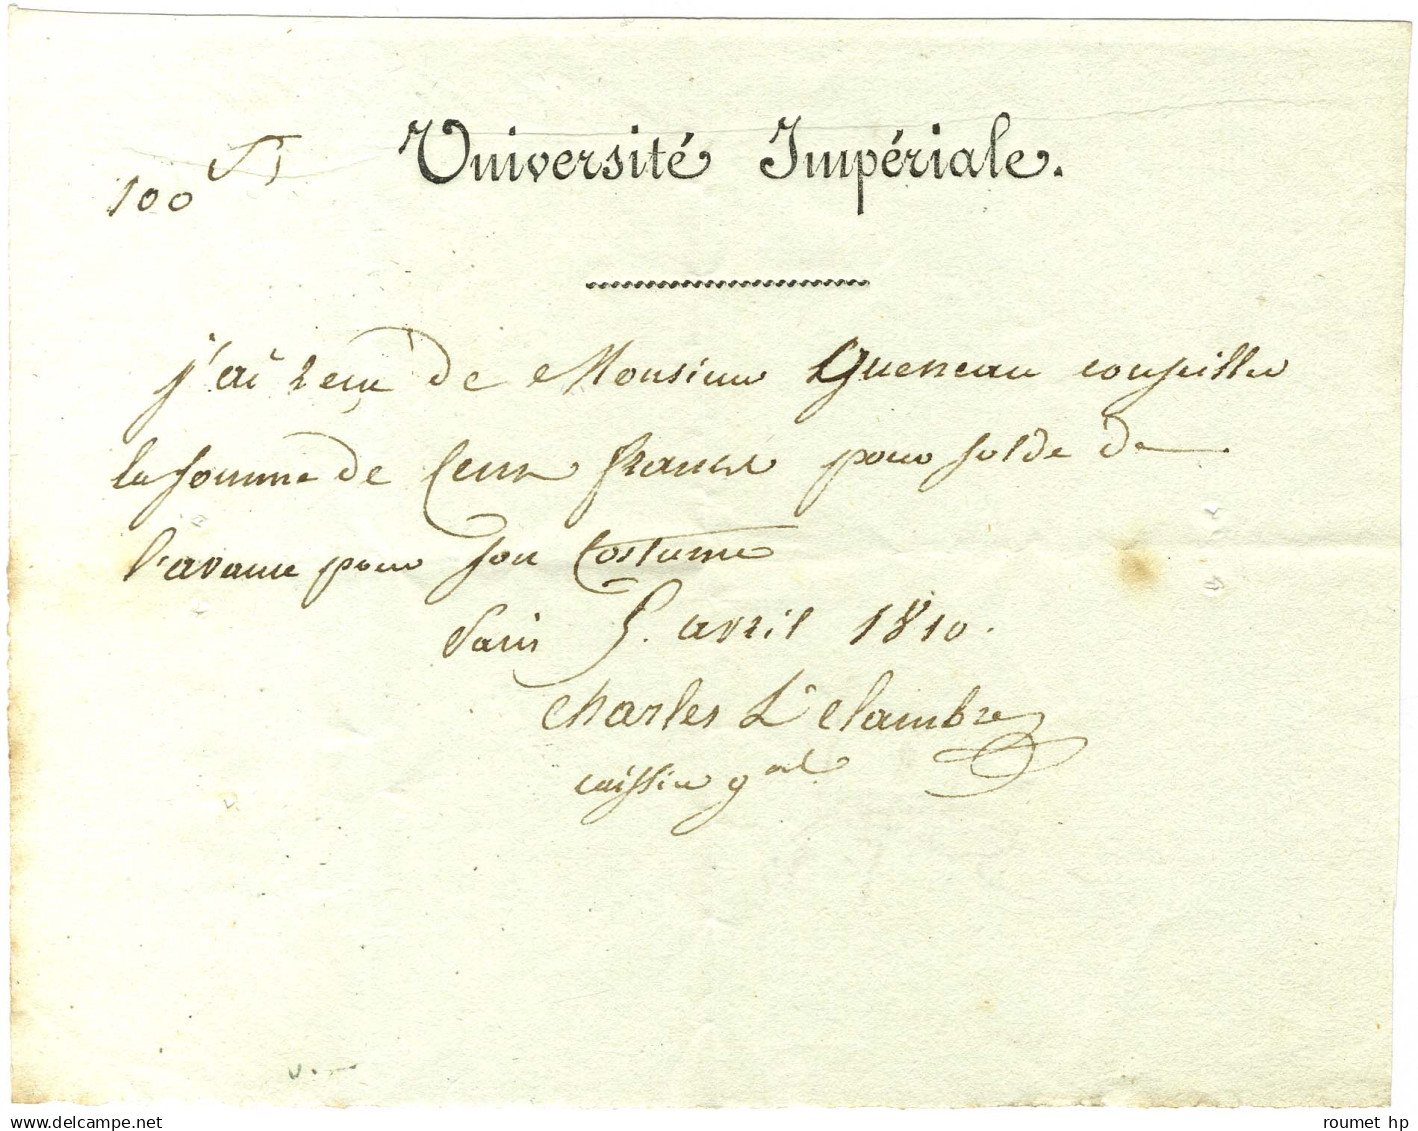 Université Impériale.
100 f
j'ai reçu de Monsieur Gueneau conseiller
la somme de Cent francs pour solde de
l'avance pour son Costume
Paris 5. avril 1810.
Charles Delambre
caissier gal
delcampe.net
roumet hp